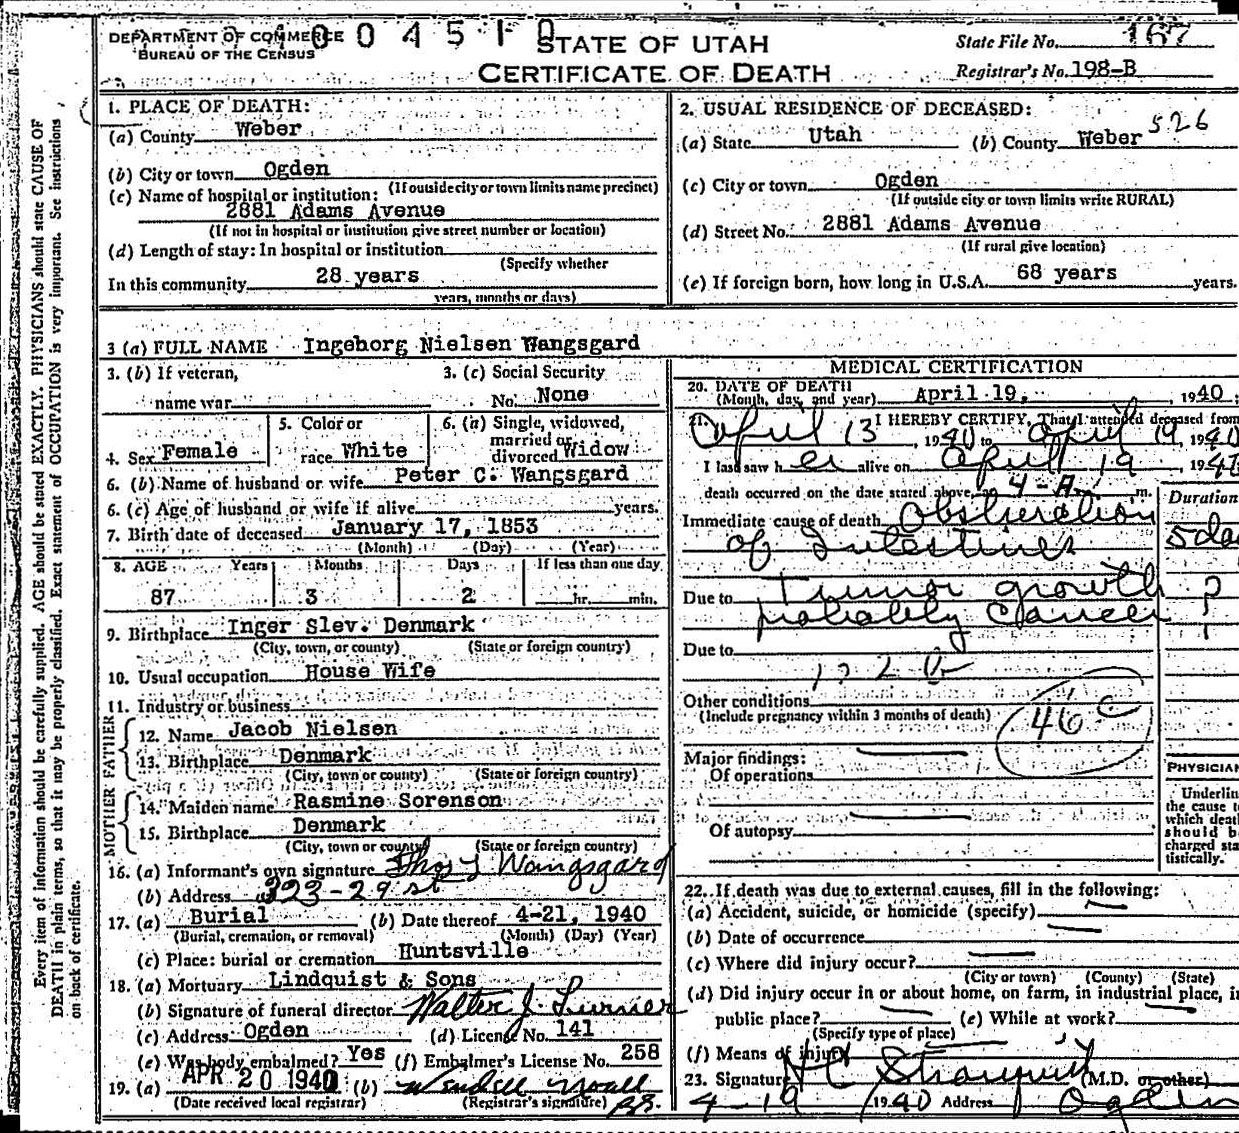 DEPARTMENT OF COMMERCE
BUREAU OF THE CENSUS
STATE OF UTAH
CERTIFICATE OF DEATH
State File No. 167
Registrar's No. 198-B
Every item of information should be carefully supplied. AGE should be stated EXACTLY. PHYSICIANS should state CAUSE OF
DEATH in plain terms, so that it may be properly classified. Exact statement of OCCUPATION is very important. See instructions
on back of certificate.
1. PLACE OF DEATH:
(a) County Weber
(b) City or town Ogden
(If outside city or town limits name precinct)
(c) Name of hospital or institution:
2881 Adams Avenue
(If not in hospital or institution give street number or location)
(d) Length of stay: In hospital or institution
(Specify whether
In this community 28 years
years, months or days)
2. USUAL RESIDENCE OF DECEASED:
(a) State Utah (b) County Weber 526
(c) City or town Ogden
(If outside city or town limits write RURAL)
(d) Street No. 2881 Adams Avenue
(If rural give location)
(e) If foreign born, how long in U.S.A. 68 years years.
3 (a) FULL NAME Ingeborg Nielsen Wangsgard
3. (b) If veteran,
name war
3. (c) Social Security
No. None
4. Sex Female
5. Color or
race White
6. (a) Single, widowed,
married or
divorced Widow
6. (b) Name of husband or wife Peter C. Wangsgard
6. (c) Age of husband or wife if alive years.
7. Birth date of deceased January 17, 1853
(Month) (Day) (Year)
8. AGE Years Months Days If less than one day
87 3 2 hr. min.
9. Birthplace Inger Slev. Denmark
(City, town, or county) (State or foreign country)
10. Usual occupation House Wife
11. Industry or business
FATHER
12. Name Jacob Nielsen
13. Birthplace Denmark
(City, town or county) (State or foreign country)
MOTHER
14. Maiden name Rasmine Sorenson
15. Birthplace Denmark
(City, town or county) (State or foreign country)
16. (a) Informant's own signature Wangsgard
(b) Address 323-29 st
17. (a) Burial (b) Date thereof 4-21, 1940
(Burial, cremation, or removal) (Month) (Day) (Year)
(c) Place: burial or cremation Huntsville
18. (a) Mortuary Lindquist & Sons
(b) Signature of funeral director Walter J.
(c) Address Ogden (d) License No. 141
(e) Was body embalmed? Yes (f) Embalmer's License No. 258
19. (a) APR 20 1940 (b) Wendell
(Date received local registrar) (Registrar's signature)
MEDICAL CERTIFICATION
20. DATE OF DEATH
(Month, day, and year) April 19, 1940
21. I HEREBY CERTIFY, That I attended deceased from
April 13, 1940 to April 19, 1940
I last saw her alive on April 19, 194
death occurred on the date stated above, at 4-A. m.
Duration
Immediate cause of death Obstruction
of Intestines
Due to Tumor growth ?
probably Cancer
Due to
Other conditions
(Include pregnancy within 3 months of death)
46 C
Major findings:
Of operations
Of autopsy
PHYSICIAN
Underlin
the cause t
which deat
should b
charged sta
tistically.
22. If death was due to external causes, fill in the following:
(a) Accident, suicide, or homicide (specify)
(b) Date of occurrence
(c) Where did injury occur?
(City or town) (County) (State)
(d) Did injury occur in or about home, on farm, in industrial place, in
public place? (e) While at work?
(Specify type of place)
(f) Means of injury
23. Signature (M.D. or other)
4-19 1940 Address Ogden